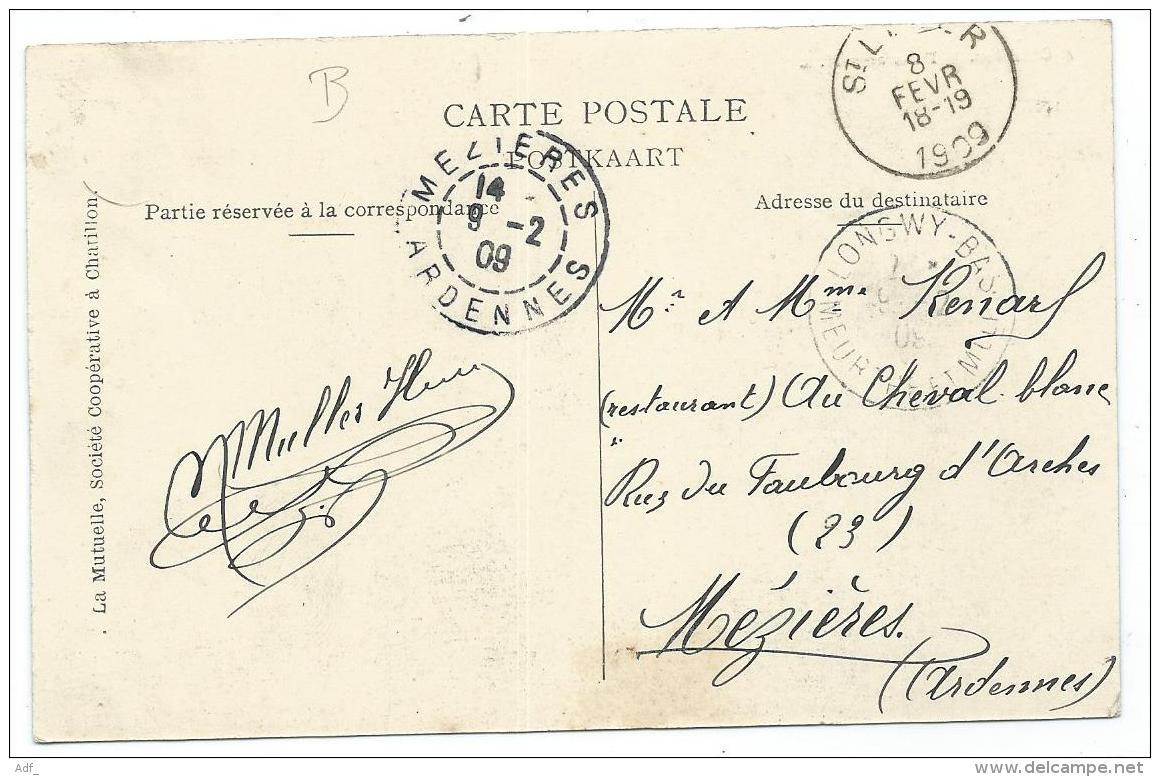 B
CARTE POSTALE
POSTKAART
Partie réservée à la correspondance
Adresse du destinataire
La Mutuelle, Société Coopérative à Chatillon.
8
FEVR
18-19
1909
MEZIERES
14
9 -2
09
ARDENNES
LONGWY-BAS
09
Mr et Mme Renard
(restaurant) Au Cheval blanc
Rue du Faubourg d'Arches
(23)
Mézières.
(Ardennes)
Muller
Adf_
delcampe.net